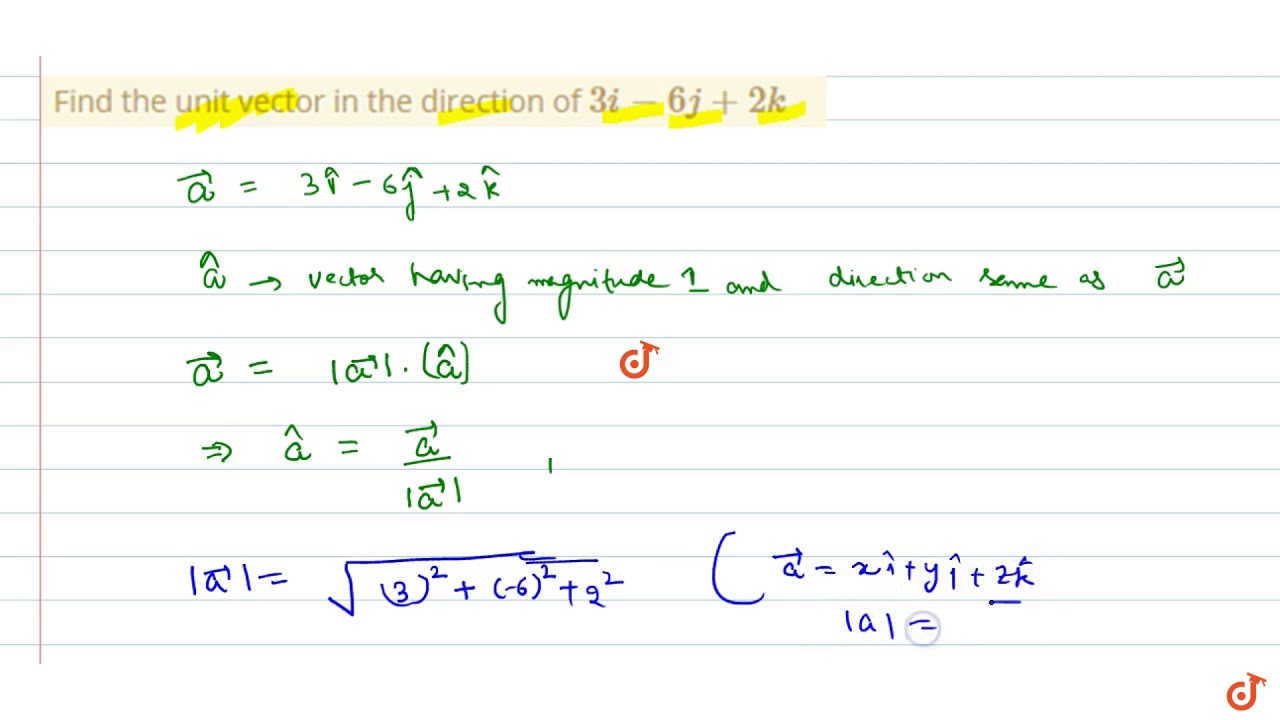 Find the unit vector in the direction of 3i − 6j + 2k
a⃗ = 3î − 6ĵ + 2k̂
â → vector having magnitude 1 and direction same as a⃗
a⃗ = |a⃗| · (â)
⇒ â = a⃗ / |a⃗| ,
|a⃗| = √((3)² + (-6)² + 2²)
( a⃗ = xî + yĵ + zk̂
|a| =